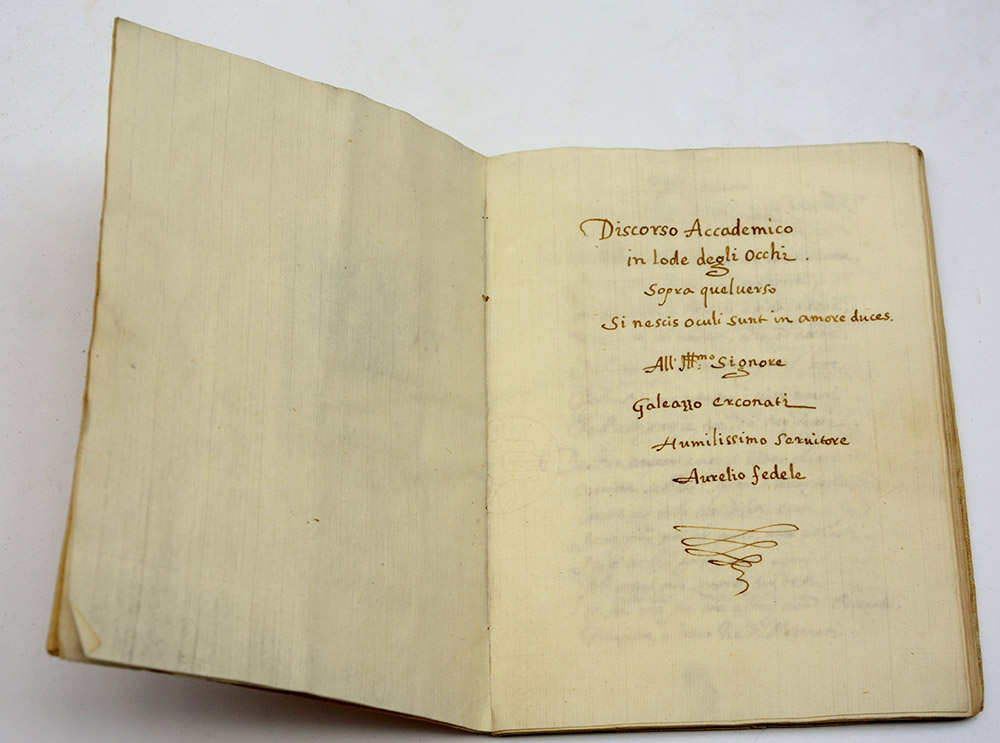 Discorso Accademico
in lode degli Occhi .
Sopra quel uerso
Si nescis oculi sunt in amore duces.
All' Ill:mo Signore
Galeazzo Erconati
Humilissimo Seruitore
Aurelio Fedele